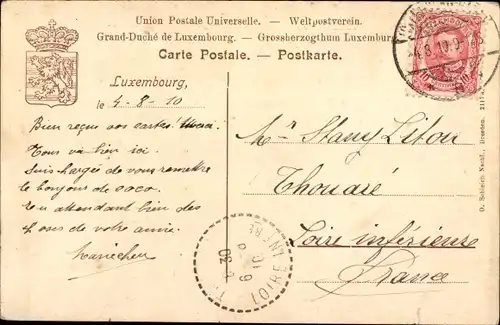 Union Postale Universelle. – Weltpostverein.
Grand-Duché de Luxembourg. – Grossherzogthum Luxemburg
Carte Postale. – Postkarte.
Luxembourg,
le 4-8-10
Bien reçu vos cartes!
Tous va bien ici.
Suis chargée de vous remettre
le bonjour de coco.
en attendant bien des
choses de votre amie.
Mr Stany Liton
Thouaré
Loire inférieure
France
O. Schleich Nachf., Dresden.
LOIRE INFRE